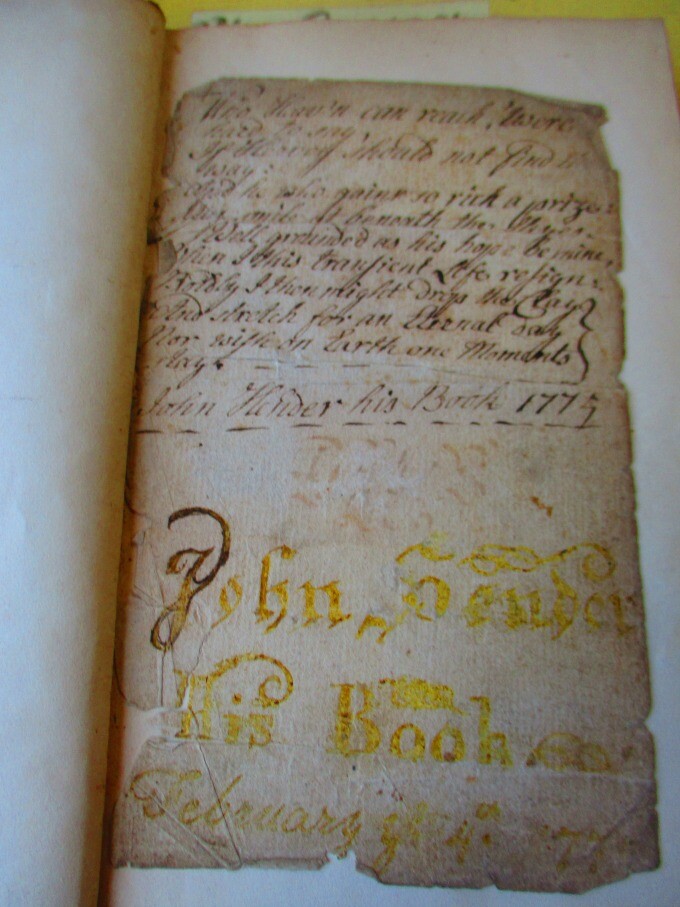 Who Heav'n can reach, 'twere
hard to say
If He should not find
way:
And he who gains so rich a prize
smile at beneath the
Well grounded as his hope be mine,
When I this transient Life resign:
Boldly I then might drop the Clay
And stretch for an Eternal day
Nor wish on Earth one Moments
stay.
John Hender his Book 1775
John Hender
His Book
February ye 4th